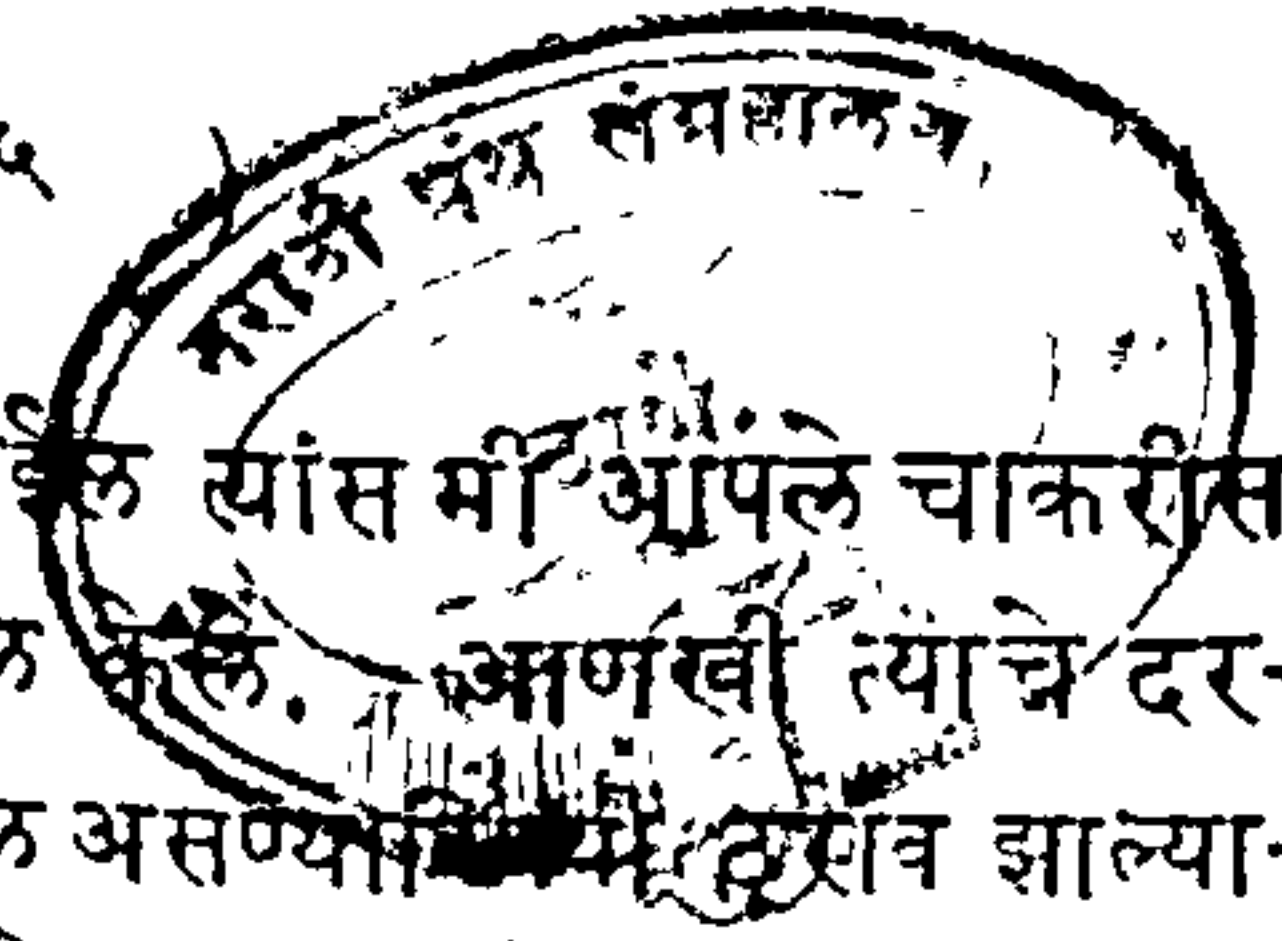 मराठी ग्रंथ संग्रहालय,
ईल त्यांस मी आपले चाकरीस
केलें. आणखी त्यांचे दर-
असण्याविषयीं ठराव झाल्या-